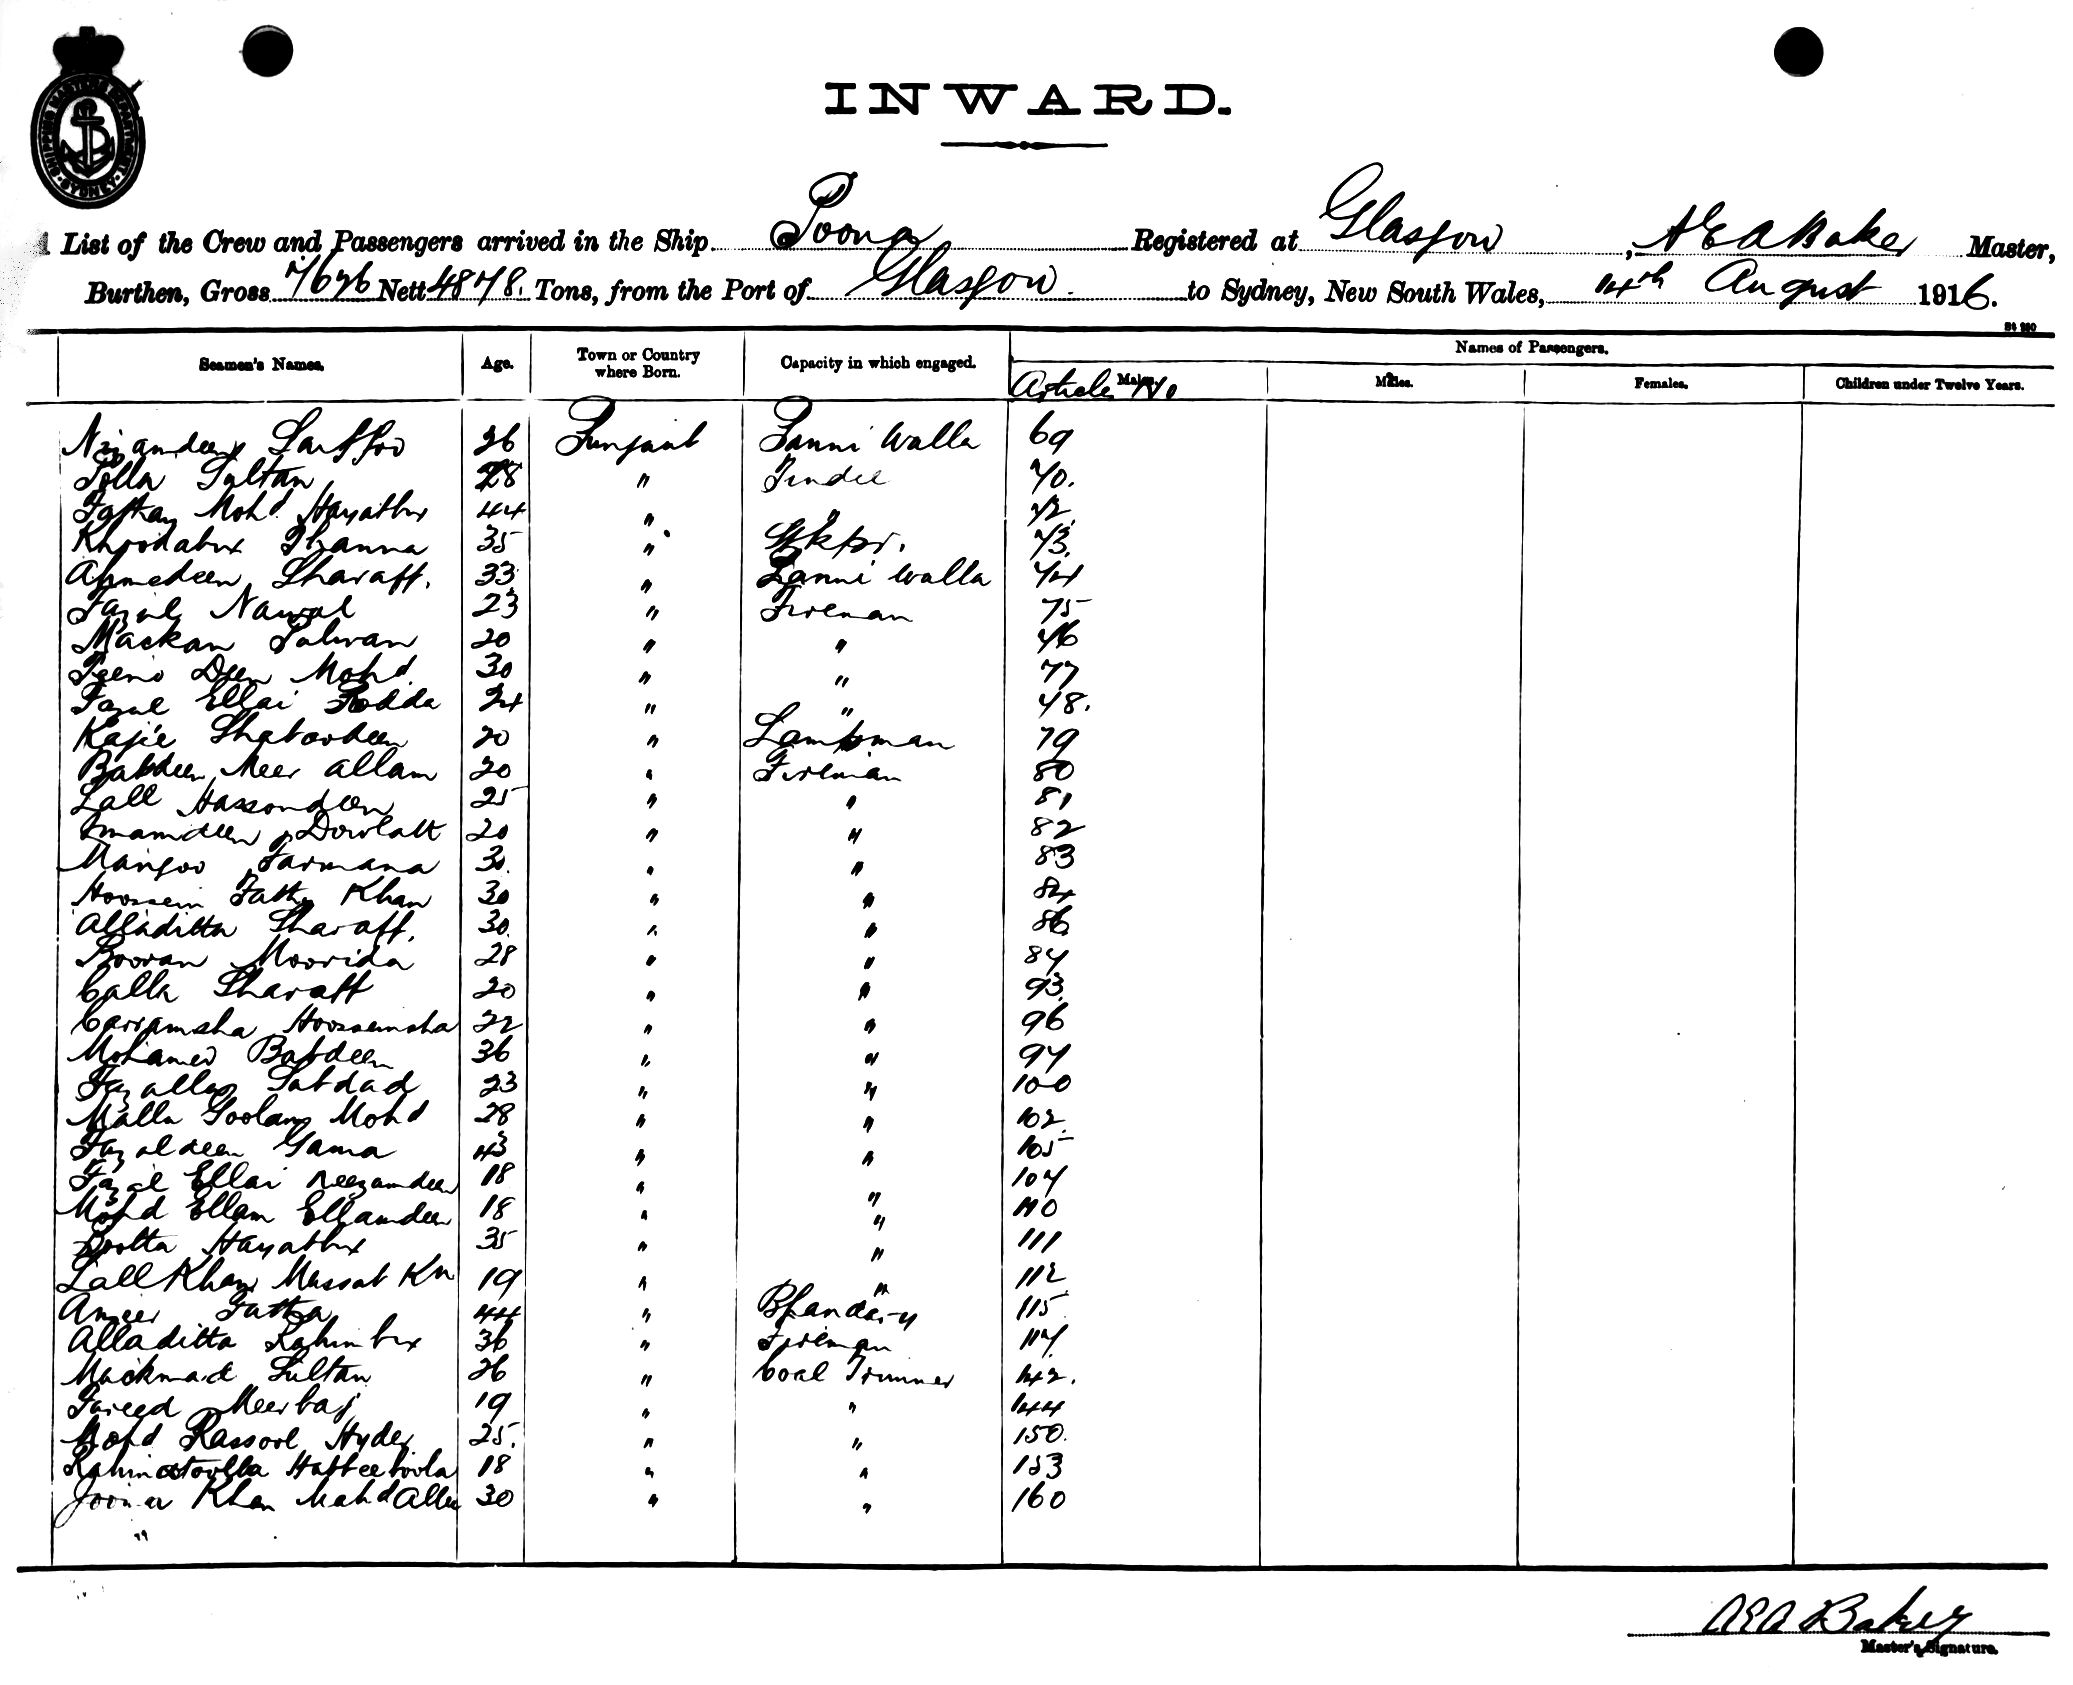 SHIPPING MASTER'S DEPARTMENT SYDNEY
INWARD.
A List of the Crew and Passengers arrived in the Ship Poona Registered at Glasgow, A E A Baker Master,
Burthen, Gross 7626 Nett 4878. Tons, from the Port of Glasgow. to Sydney, New South Wales, 14th August 1916.
Seamen's Names. Age. Town or Country where Born. Capacity in which engaged. Names of Passengers.
Article No Males. Males. Females. Children under Twelve Years.
Nizamdeen 26 Punjaub Panni Walla 69
Tolla Sultan 28 " Tindel 70.
Mohd Hayatbux 44 " " 72
Khoodabux Thanna 35 " Stkpr. 73.
Ahmedeen Sharaff. 33 " Panni Walla 74
Fazul Nawal 23 " Fireman 75
Mackan Palwan 20 " " 76
Deen Mohd. 30 " " 77
Fazul Ellai Fodda 24 " " 78.
Kajie 20 " Lampman 79
Babdeen Meer Allam 20 " Fireman 80
Lall Hassondeen 25 " " 81
Imamdeen Dowlatt 20 " " 82
Mangoo Farmana 30. " " 83
Hoossein Fatty Khan 30 " " 84
Alladitta Sharaff. 30. " " 86
Booran Moorida 28 " " 87
Calla Sharaff 20 " " 93.
Carramsha Hoossensha 22 " " 96
Mohamed Babdeen 36 " " 97
Fazalla Sabdad 23 " " 100
Malla Goolam Mohd 28 " " 102.
Fazaldeen Gama 43 " " 105
Fazal Ellai Neezamdeen 18 " " 107
Mohd Ellam Ellamdeen 18 " " 110
Bootta Hayatbux 35 " " 111
Lall Khan Massab Kn 19 " " 112
Ameer Fatta 44 " Bhandary 115
Alladitta Rahimbux 36 " Fireman 117.
Mackmad Sultan 26 " Coal Trimmer 142.
Fareed Meerbaj 19 " " 144
Mohd Rassool Hyder 25. " " 150.
Rahimatoolla Habbeeboola 18 " " 153
Jooma Khan Mahd Alla 30 " " 160
"
A E A Baker
Master's Signature.